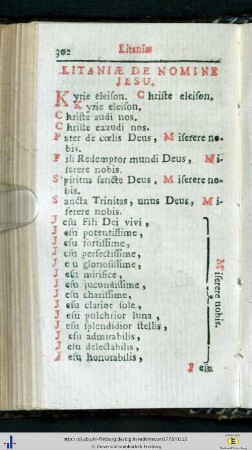 302 Litaniæ
LITANIÆ DE NOMINE
JESU.
Kyrie eleison. Christe eleison.
Kyrie eleison.
Christe audi nos.
Christe exaudi nos.
Pater de cœlis Deus, Miserere no-
bis.
Fili Redemptor mundi Deus, Mi-
serere nobis.
Spiritus sancte Deus, Miserere no-
bis.
Sancta Trinitas, unus Deus, Mi-
serere nobis.
Jesu Fili Dei vivi,
Jesu potentissime,
Jesu fortissime,
Jesu perfectissime,
Jesu gloriosissime,
Jesu mirifice,
Jesu jucundissime,
Jesu charissime,
Jesu clarior sole,
Jesu pulchrior luna,
Jesu splendidior stellis,
Jesu admirabilis,
Jesu delectabilis,
Jesu honorabilis,
Miserere nobis.
Jesu
© Universitätsbibliothek Freiburg